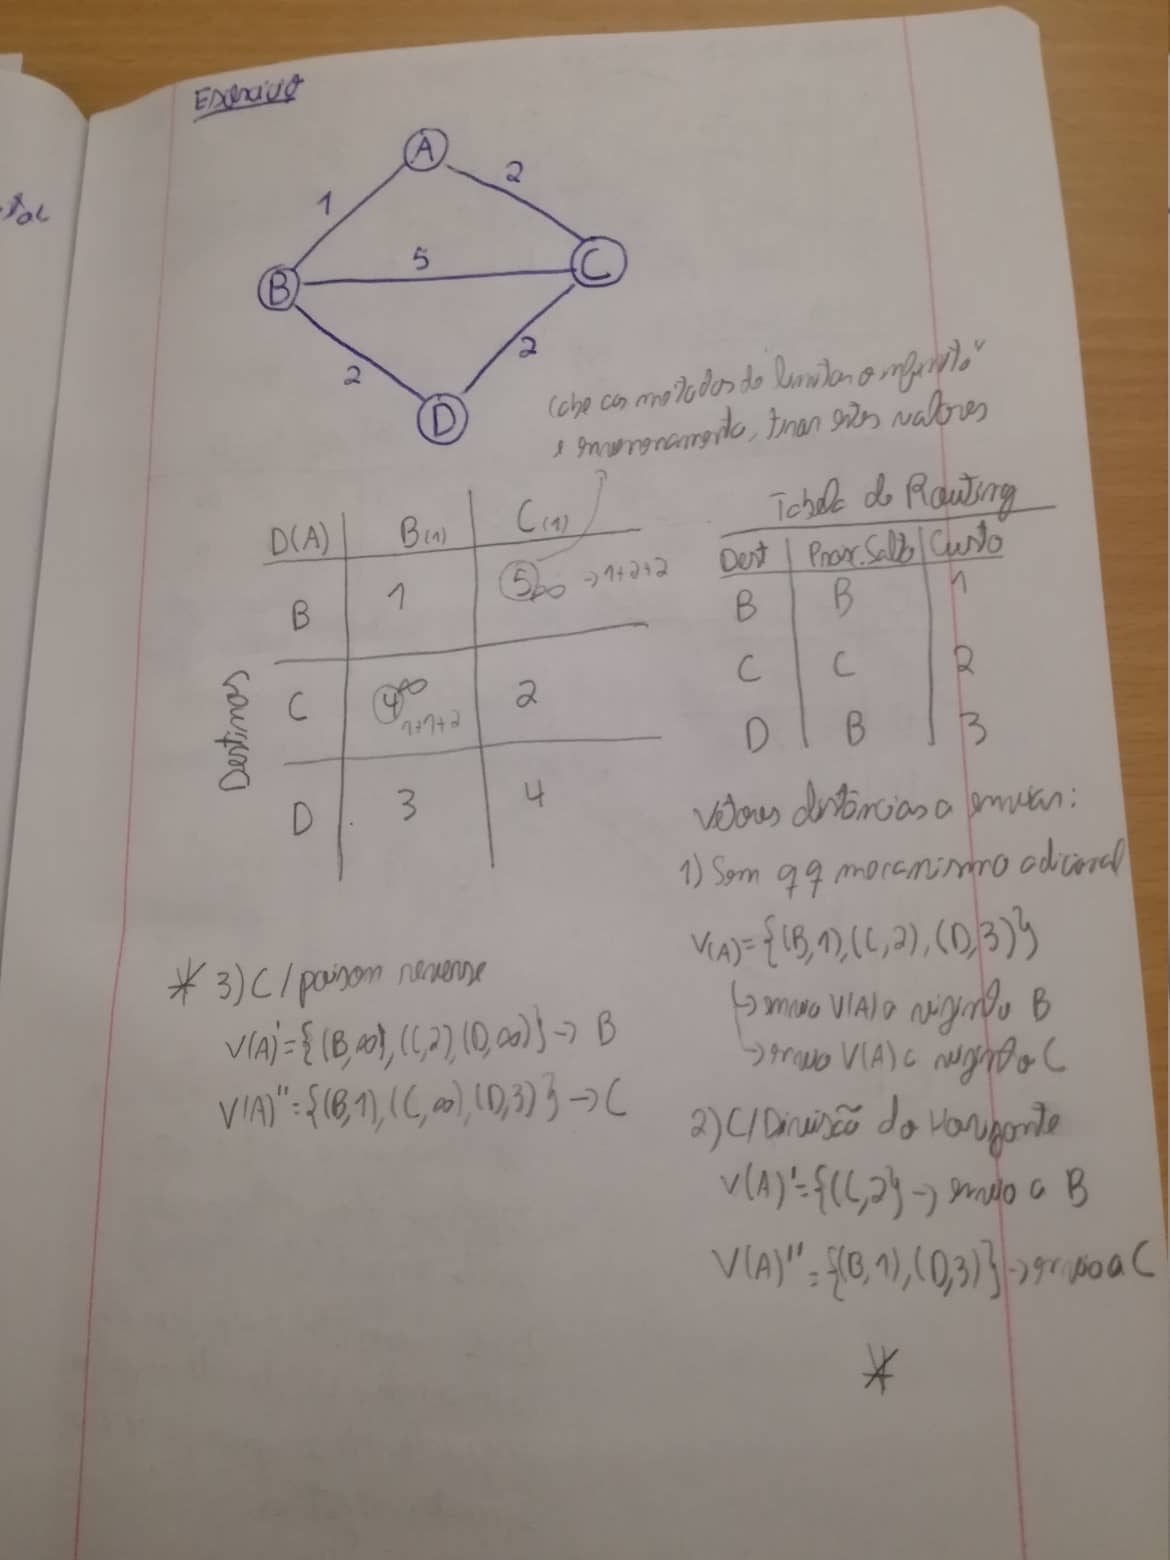 Exercício
A
1
2
B
5
C
2
2
D
Cabe os métodos do "limitar o infinito"
e envenenamento, tiram estes valores
D(A) B(1) C(1)
B 1 5 ∞ → 1+2+2
Destinos
C 4 ∞ 1+1+2 2
D 3 4
Tabela de Routing
Dest Prox. Salto Custo
B B 1
C C 2
D B 3
Vetores distâncias a enviar:
1) Sem qq mecanismo adicional
V(A)={(B,1),(C,2),(D,3)}
↳ envio V(A) a vizinho B
→ envio V(A) a vizinho C
2) C/Divisão do Horizonte
V(A)'={(C,2} → envio a B
V(A)''={(B,1),(D,3)} → envio a C
*
* 3) C/poison reverse
V(A)'={(B,∞),(C,2),(D,∞)} → B
V(A)''={(B,1),(C,∞),(D,3)} → C